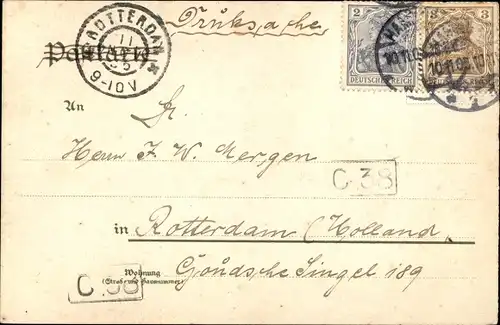 Drucksache
ROTTERDAM
11
9-10V
Postkarte
2
DEUTSCHES REICH
3
An
Fr.
Herrn F. W. Mergen
C.38
in Rotterdam (Holland.
Wohnung
Goudsche Singel 189
(Straße und Hausnummer)
C.38